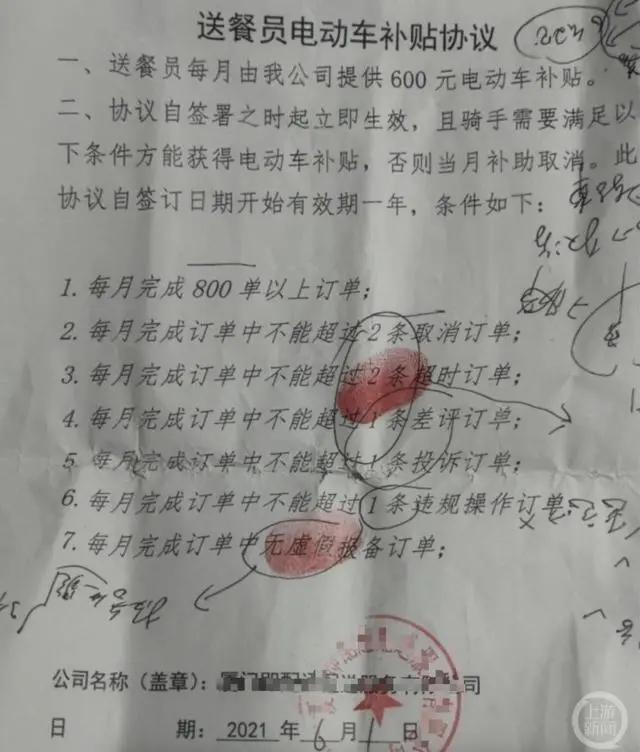 送餐员电动车补贴协议
一、送餐员每月由我公司提供600元电动车补贴。
二、协议自签署之时起立即生效，且骑手需要满足以
下条件方能获得电动车补贴，否则当月补助取消。此
协议自签订日期开始有效期一年，条件如下：
1.每月完成800单以上订单；
2.每月完成订单中不能超过2条取消订单；
3.每月完成订单中不能超过2条超时订单；
4.每月完成订单中不能超过1条差评订单；
5.每月完成订单中不能超过1条投诉订单；
6.每月完成订单中不能超过1条违规操作订单
7.每月完成订单中无虚假报备订单；
公司名称（盖章）：
日 期：2021年6月1日
上游新闻